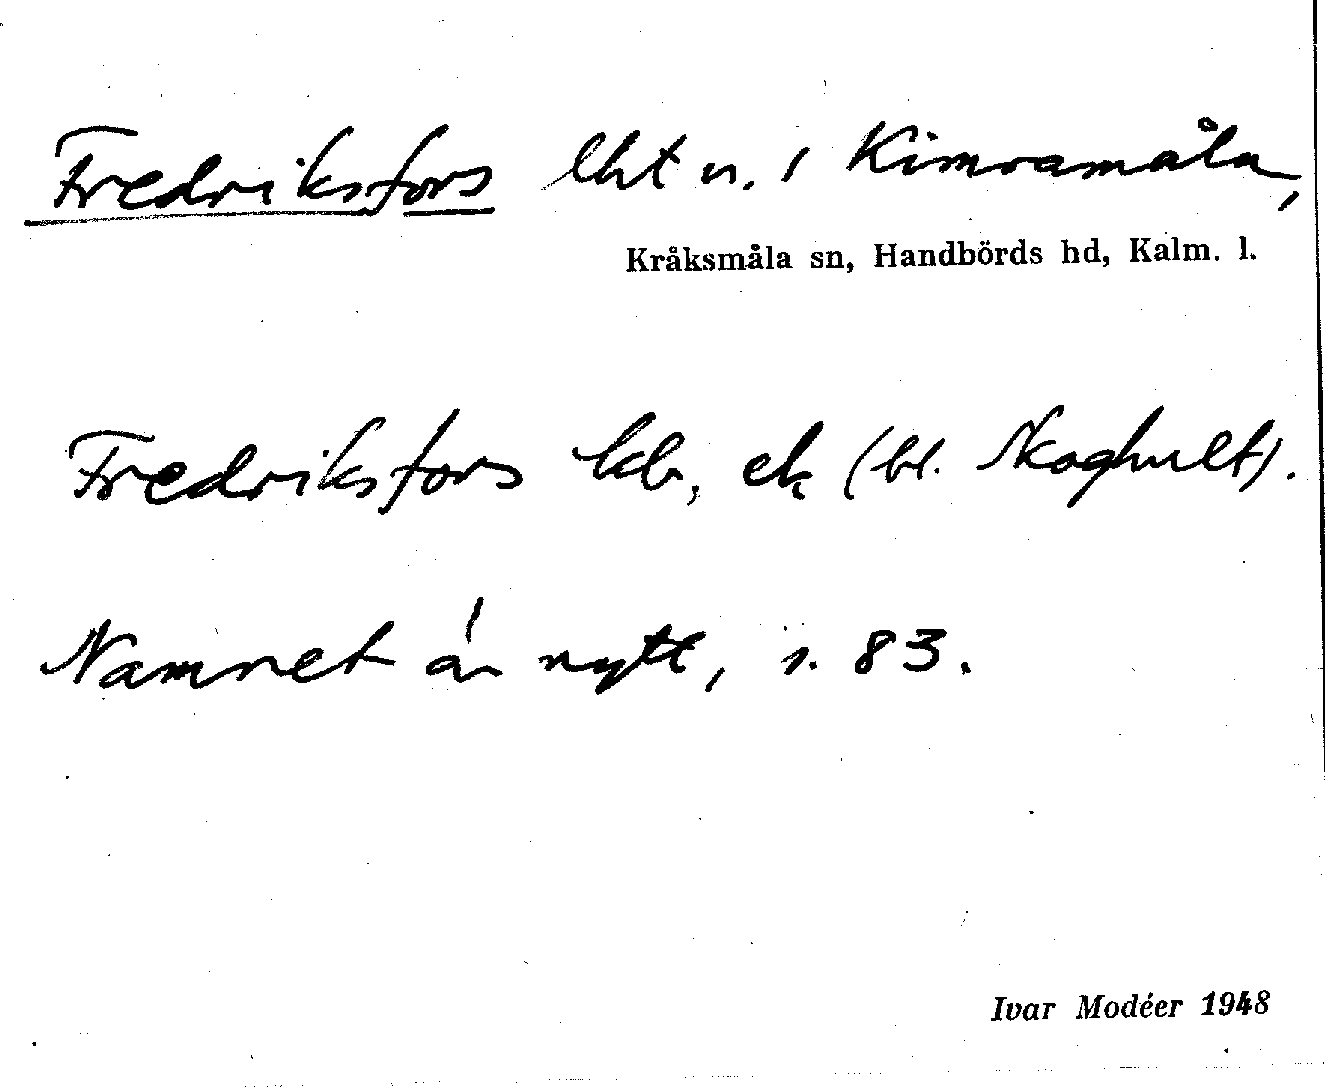 Fredriksfors lht u. / Kimramåla,
Kråksmåla sn, Handbörds hd, Kalm. l.
Fredriksfors kb, ek (bl. Skoghult).
Namnet är nytt, s. 83.
Ivar Modéer 1948